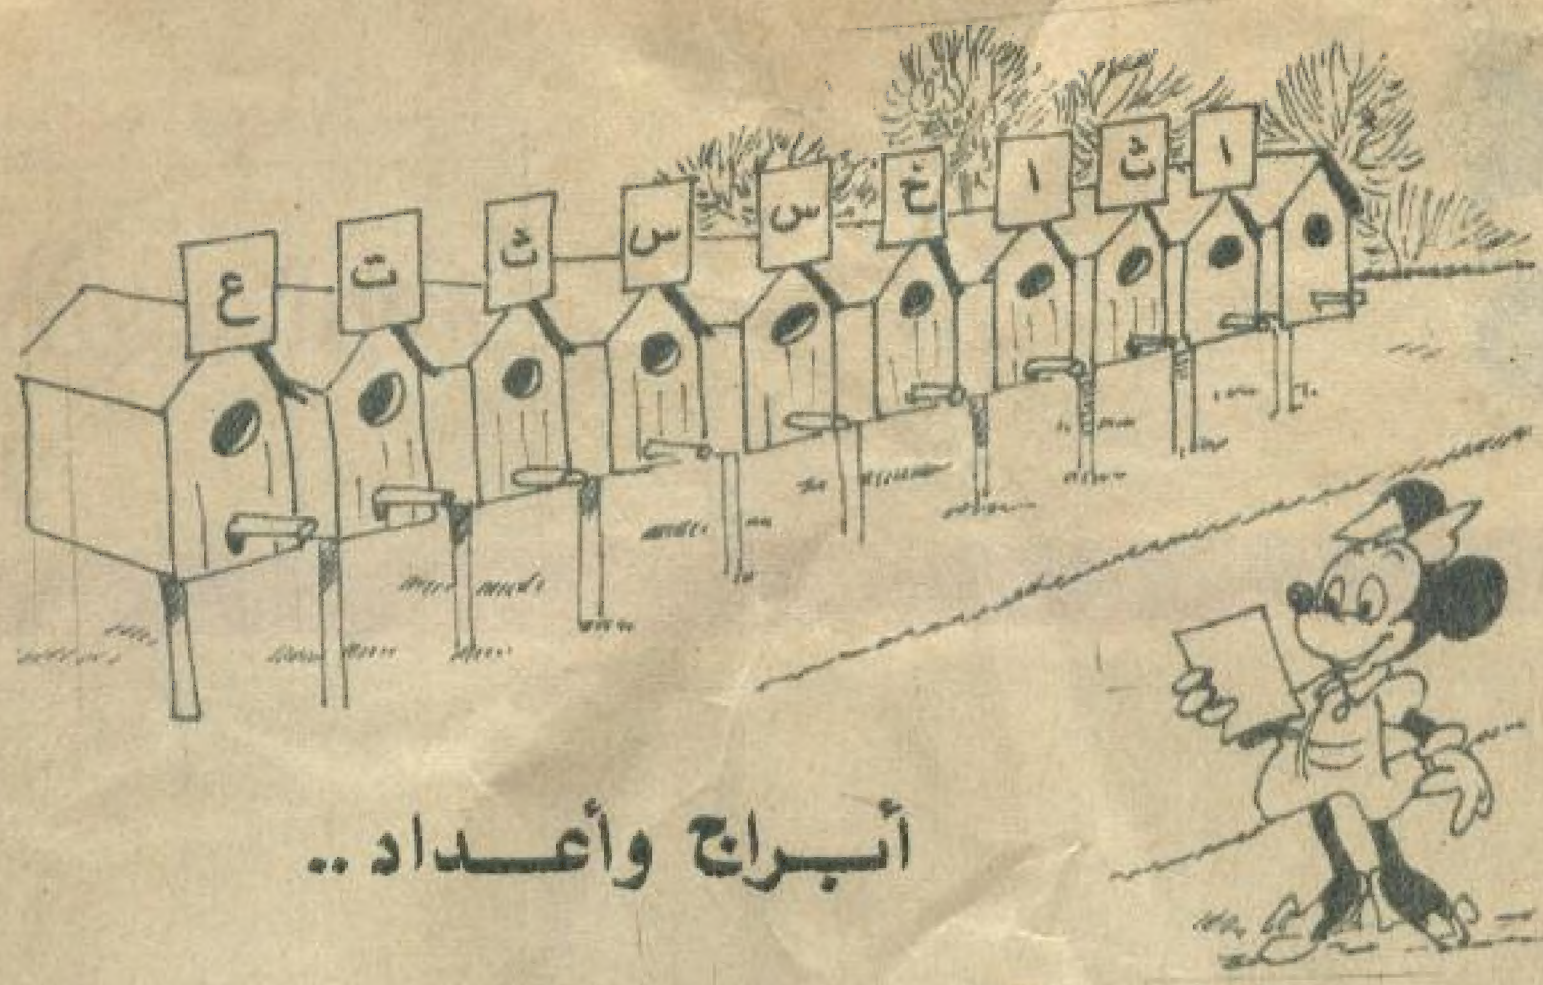 ا ث ا خ س س ث ت ع
أبراج وأعداد..